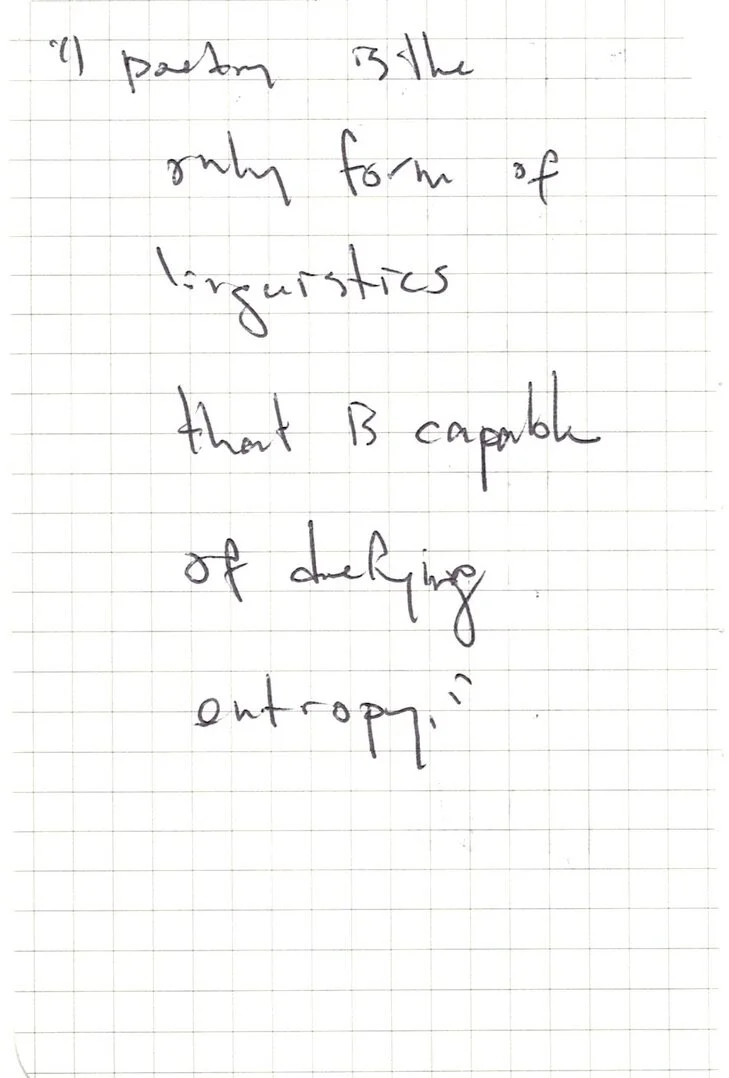 "poetry is the
only form of
linguistics
that is capable
of defying
entropy."